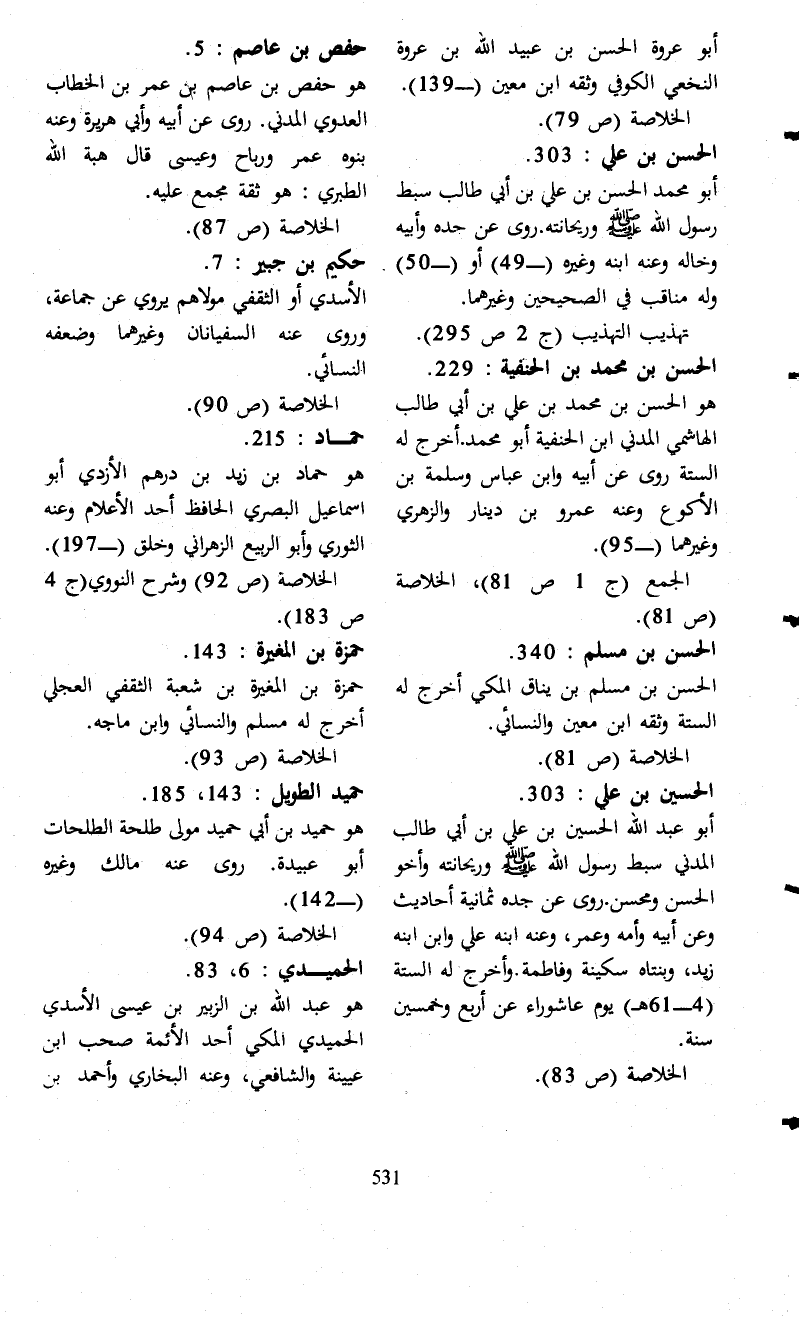 أبو عروة الحسن بن عبيد الله بن عروة
النخعي الكوفي وثقه ابن معين (ــ139).
الخلاصة (ص 79).
الحسن بن علي : 303.
أبو محمد الحسن بن علي بن أبي طالب سبط
رسول الله ﷺ وريحانته.روى عن جده وأبيه
وخاله وعنه ابنه وغيره (ــ49) أو (ــ50)
وله مناقب في الصحيحين وغيرهما.
تهذيب التهذيب (ج 2 ص 295).
الحسن بن محمد بن الحنفية : 229.
هو الحسن بن محمد بن علي بن أبي طالب
الهاشمي المدني ابن الحنفية أبو محمد.أخرج له
الستة روى عن أبيه وابن عباس وسلمة بن
الأكوع وعنه عمرو بن دينار والزهري
وغيرهما (ــ95).
الجمع (ج 1 ص 81)، الخلاصة
(ص 81).
الحسن بن مسلم : 340.
الحسن بن مسلم بن يناق المكي أخرج له
الستة وثقه ابن معين والنسائي.
الخلاصة (ص 81).
الحسين بن علي : 303.
أبو عبد الله الحسين بن علي بن أبي طالب
المدني سبط رسول الله ﷺ وريحانته وأخو
الحسن ومحسن.روى عن جده ثمانية أحاديث
وعن أبيه وأمه وعمر، وعنه ابنه علي وابن ابنه
زيد، وبنتاه سكينة وفاطمة.وأخرج له الستة
(4ــ61هـ) يوم عاشوراء عن أربع وخمسين
سنة.
الخلاصة (ص 83).
حفص بن عاصم : 5.
هو حفص بن عاصم بن عمر بن الخطاب
العدوي المدني. روى عن أبيه وأبي هريرة وعنه
بنوه عمر ورباح وعيسى قال هبة الله
الطبري : هو ثقة مجمع عليه.
الخلاصة (ص 87).
حكيم بن جبير : 7.
الأسدي أو الثقفي مولاهم يروي عن جماعة،
وروى عنه السفيانان وغيرهما وضعفه
النسائي.
الخلاصة (ص 90).
حمــاد : 215.
هو حماد بن زيد بن درهم الأزدي أبو
اسماعيل البصري الحافظ أحد الأعلام وعنه
الثوري وأبو الربيع الزهراني وخلق (ــ197).
الخلاصة (ص 92) وشرح النووي(ج 4
ص 183).
حمزة بن المغيرة : 143.
حمزة بن المغيرة بن شعبة الثقفي العجلي
أخرج له مسلم والنسائي وابن ماجه.
الخلاصة (ص 93).
حميد الطويل : 143، 185.
هو حميد بن أبي حميد مولى طلحة الطلحات
أبو عبيدة. روى عنه مالك وغيره
(ــ142).
الخلاصة (ص 94).
الحميــدي : 6، 83.
هو عبد الله بن الزبير بن عيسى الأسدي
الحميدي المكي أحد الأئمة صحب ابن
عيينة والشافعي، وعنه البخاري وأحمد بن
531